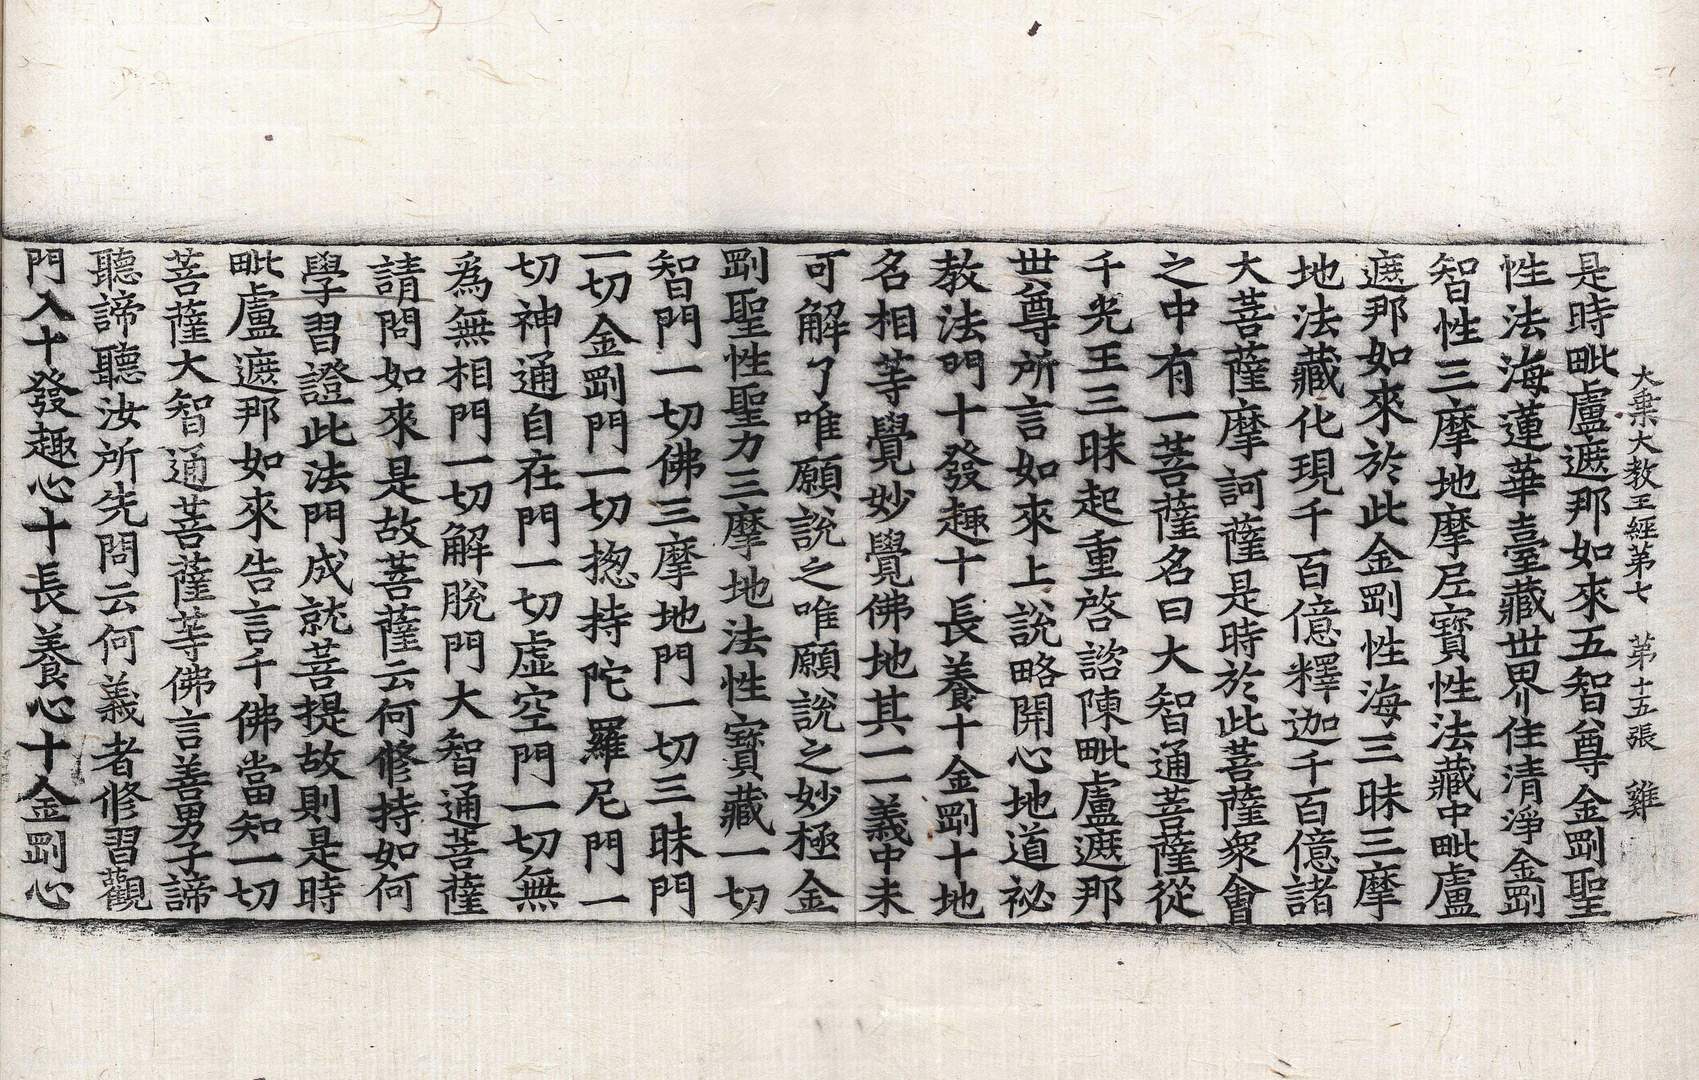 大乗大教王經第七　第十五張　雞
是時毗盧遮那如來五智尊金剛聖
性法海蓮華臺藏世界住清淨金剛
智性三摩地摩尼寶性法藏中毗盧
遮那如來於此金剛性海三昧三摩
地法藏化現千百億釋迦千百億諸
大菩薩摩訶薩是時於此菩薩衆會
之中有一菩薩名曰大智通菩薩從
千光王三昧起重啓諮陳毗盧遮那
世尊所言如來上說略開心地道祕
教法門十發趣十長養十金剛十地
名相等覺妙覺佛地其一一義中未
可解了唯願說之唯願說之妙極金
剛聖性聖力三摩地法性寶藏一切
智門一切佛三摩地門一切三昧門
一切金剛門一切揔持陀羅尼門一
切神通自在門一切虛空門一切無
爲無相門一切解脫門大智通菩薩
請問如來是故菩薩云何修持如何
學習證此法門成就菩提故則是時
毗盧遮那如來告言千佛當知一切
菩薩大智通菩薩等佛言善男子諦
聽諦聽汝所先問云何義者修習觀
門入十發趣心十長養心十金剛心